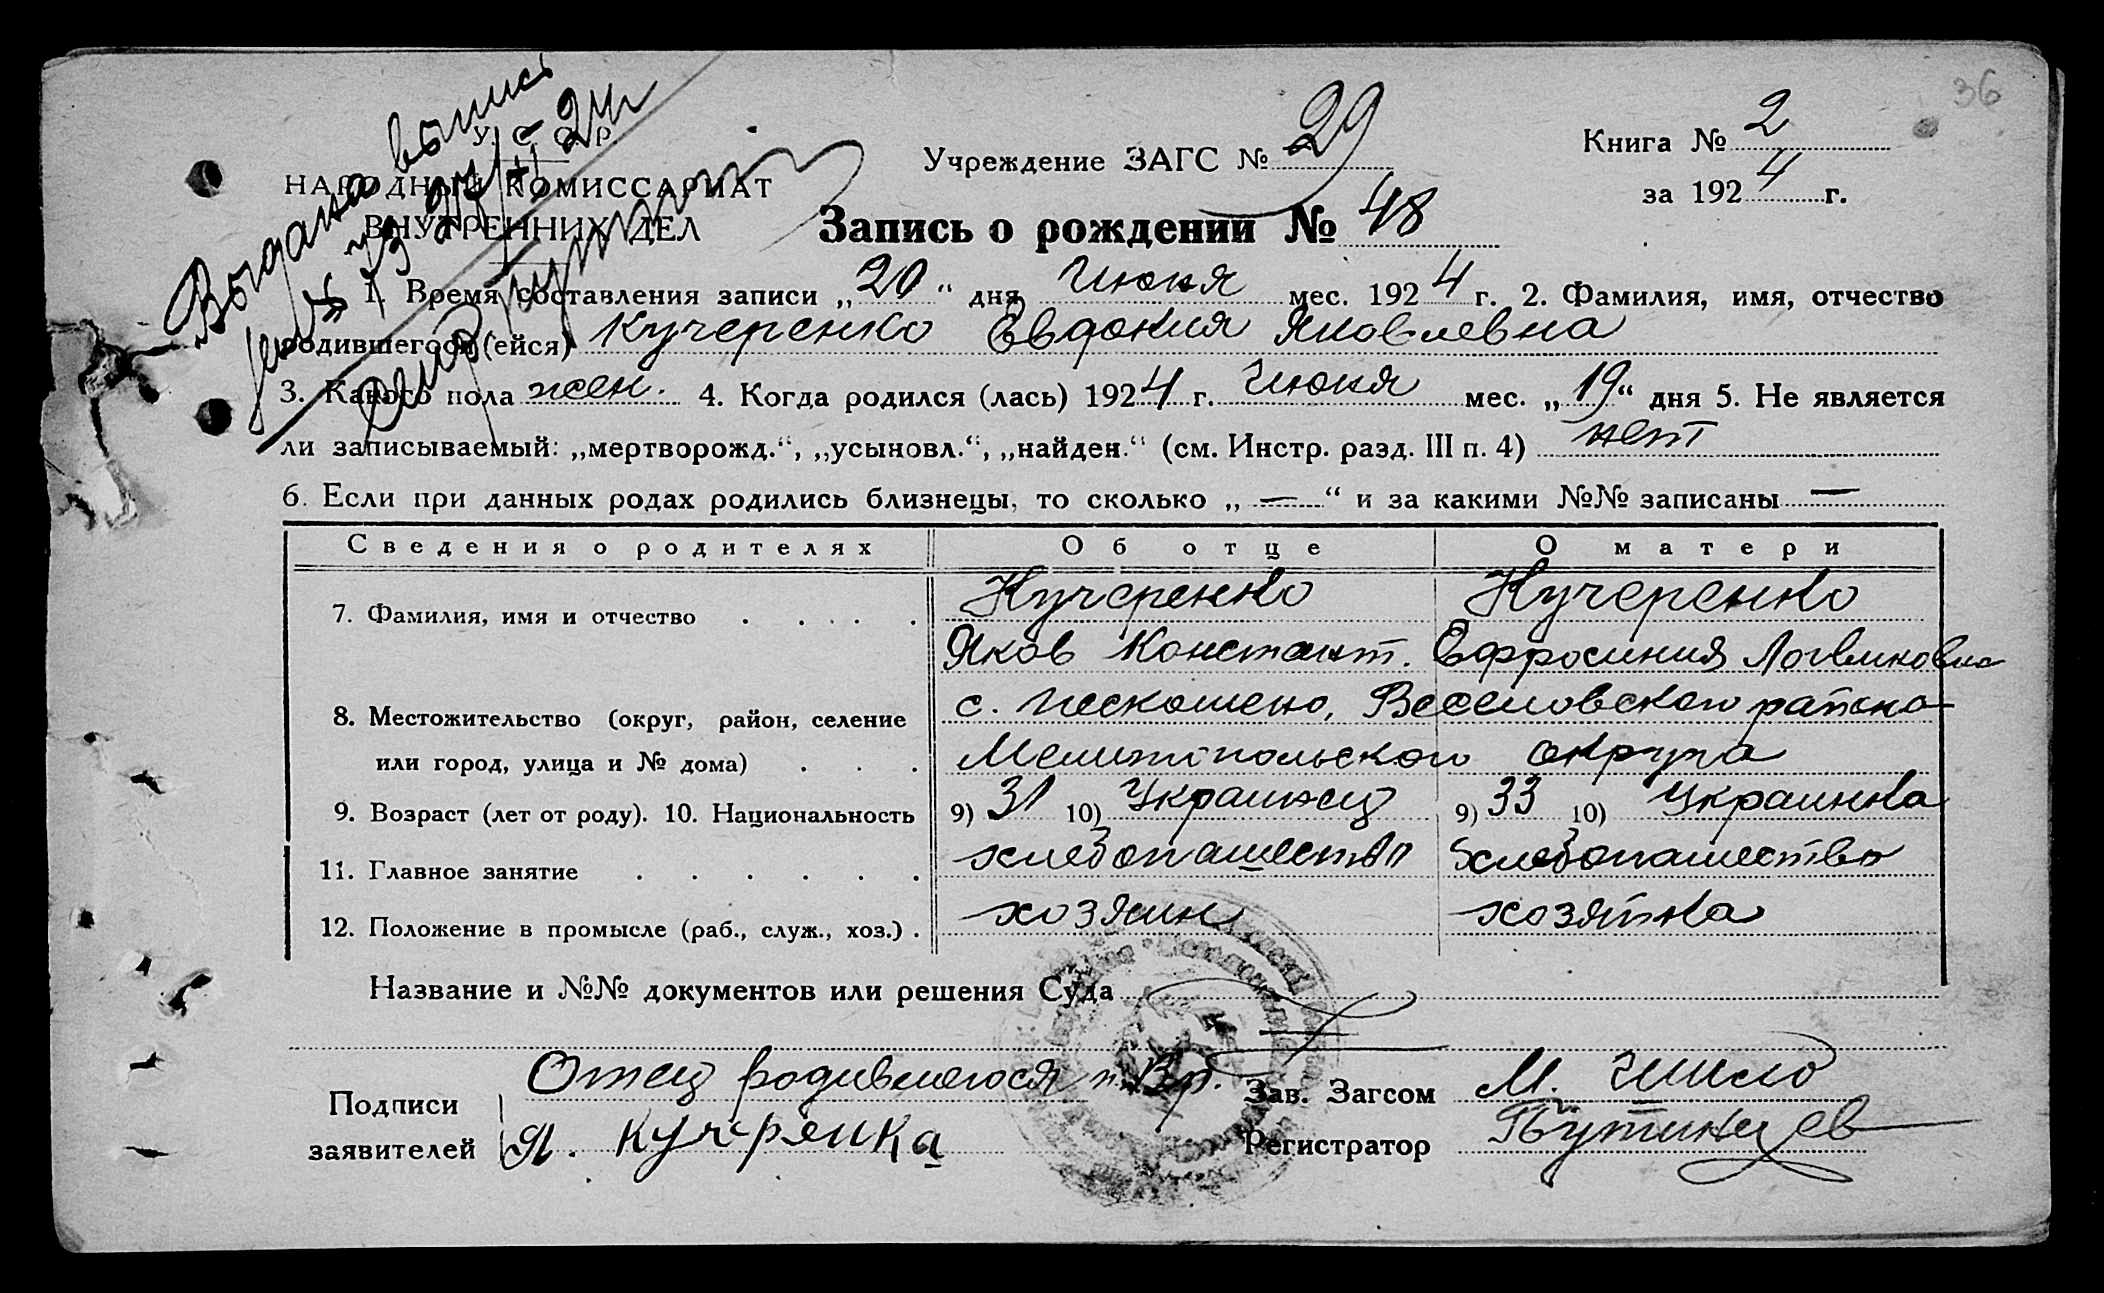 36
У. С. С. Р.
НАРОДНЫЙ КОМИССАРИАТ
ВНУТРЕННИХ ДЕЛ
Выдана выпись
Учреждение ЗАГС № 29
Книга № 2
за 1924 г.
Запись о рождении № 48
1. Время составления записи „20“ дня Июня мес. 1924 г. 2. Фамилия, имя, отчество
родившегося (ейся) Кучеренко Евдокия Яковлевна
3. Какого пола жен. 4. Когда родился (лась) 1924 г. Июня мес. „19“ дня 5. Не является
ли записываемый: „мертворожд.“, „усыновл.“, „найден.“ (см. Инстр. разд. III п. 4) нет
6. Если при данных родах родились близнецы, то сколько „ — “ и за какими №№ записаны —
Сведения о родителях Об отце О матери
7. Фамилия, имя и отчество Кучеренко Кучеренко
Яков Констант. Ефросиния Логвиновна
8. Местожительство (округ, район, селение с. Нескошено, Веселовского района
или город, улица и № дома) Мелитопольского округа
9. Возраст (лет от роду). 10. Национальность 9) 31 10) Украинец 9) 33 10) Украинка
11. Главное занятие хлебопашество хлебопашество
12. Положение в промысле (раб., служ., хоз.) хозяин хозяйка
Название и №№ документов или решения Суда
Подписи заявителей
Отец родившегося
Я. кучерянка
Вр. Зав. Загсом М. Шило
Регистратор Путинцев